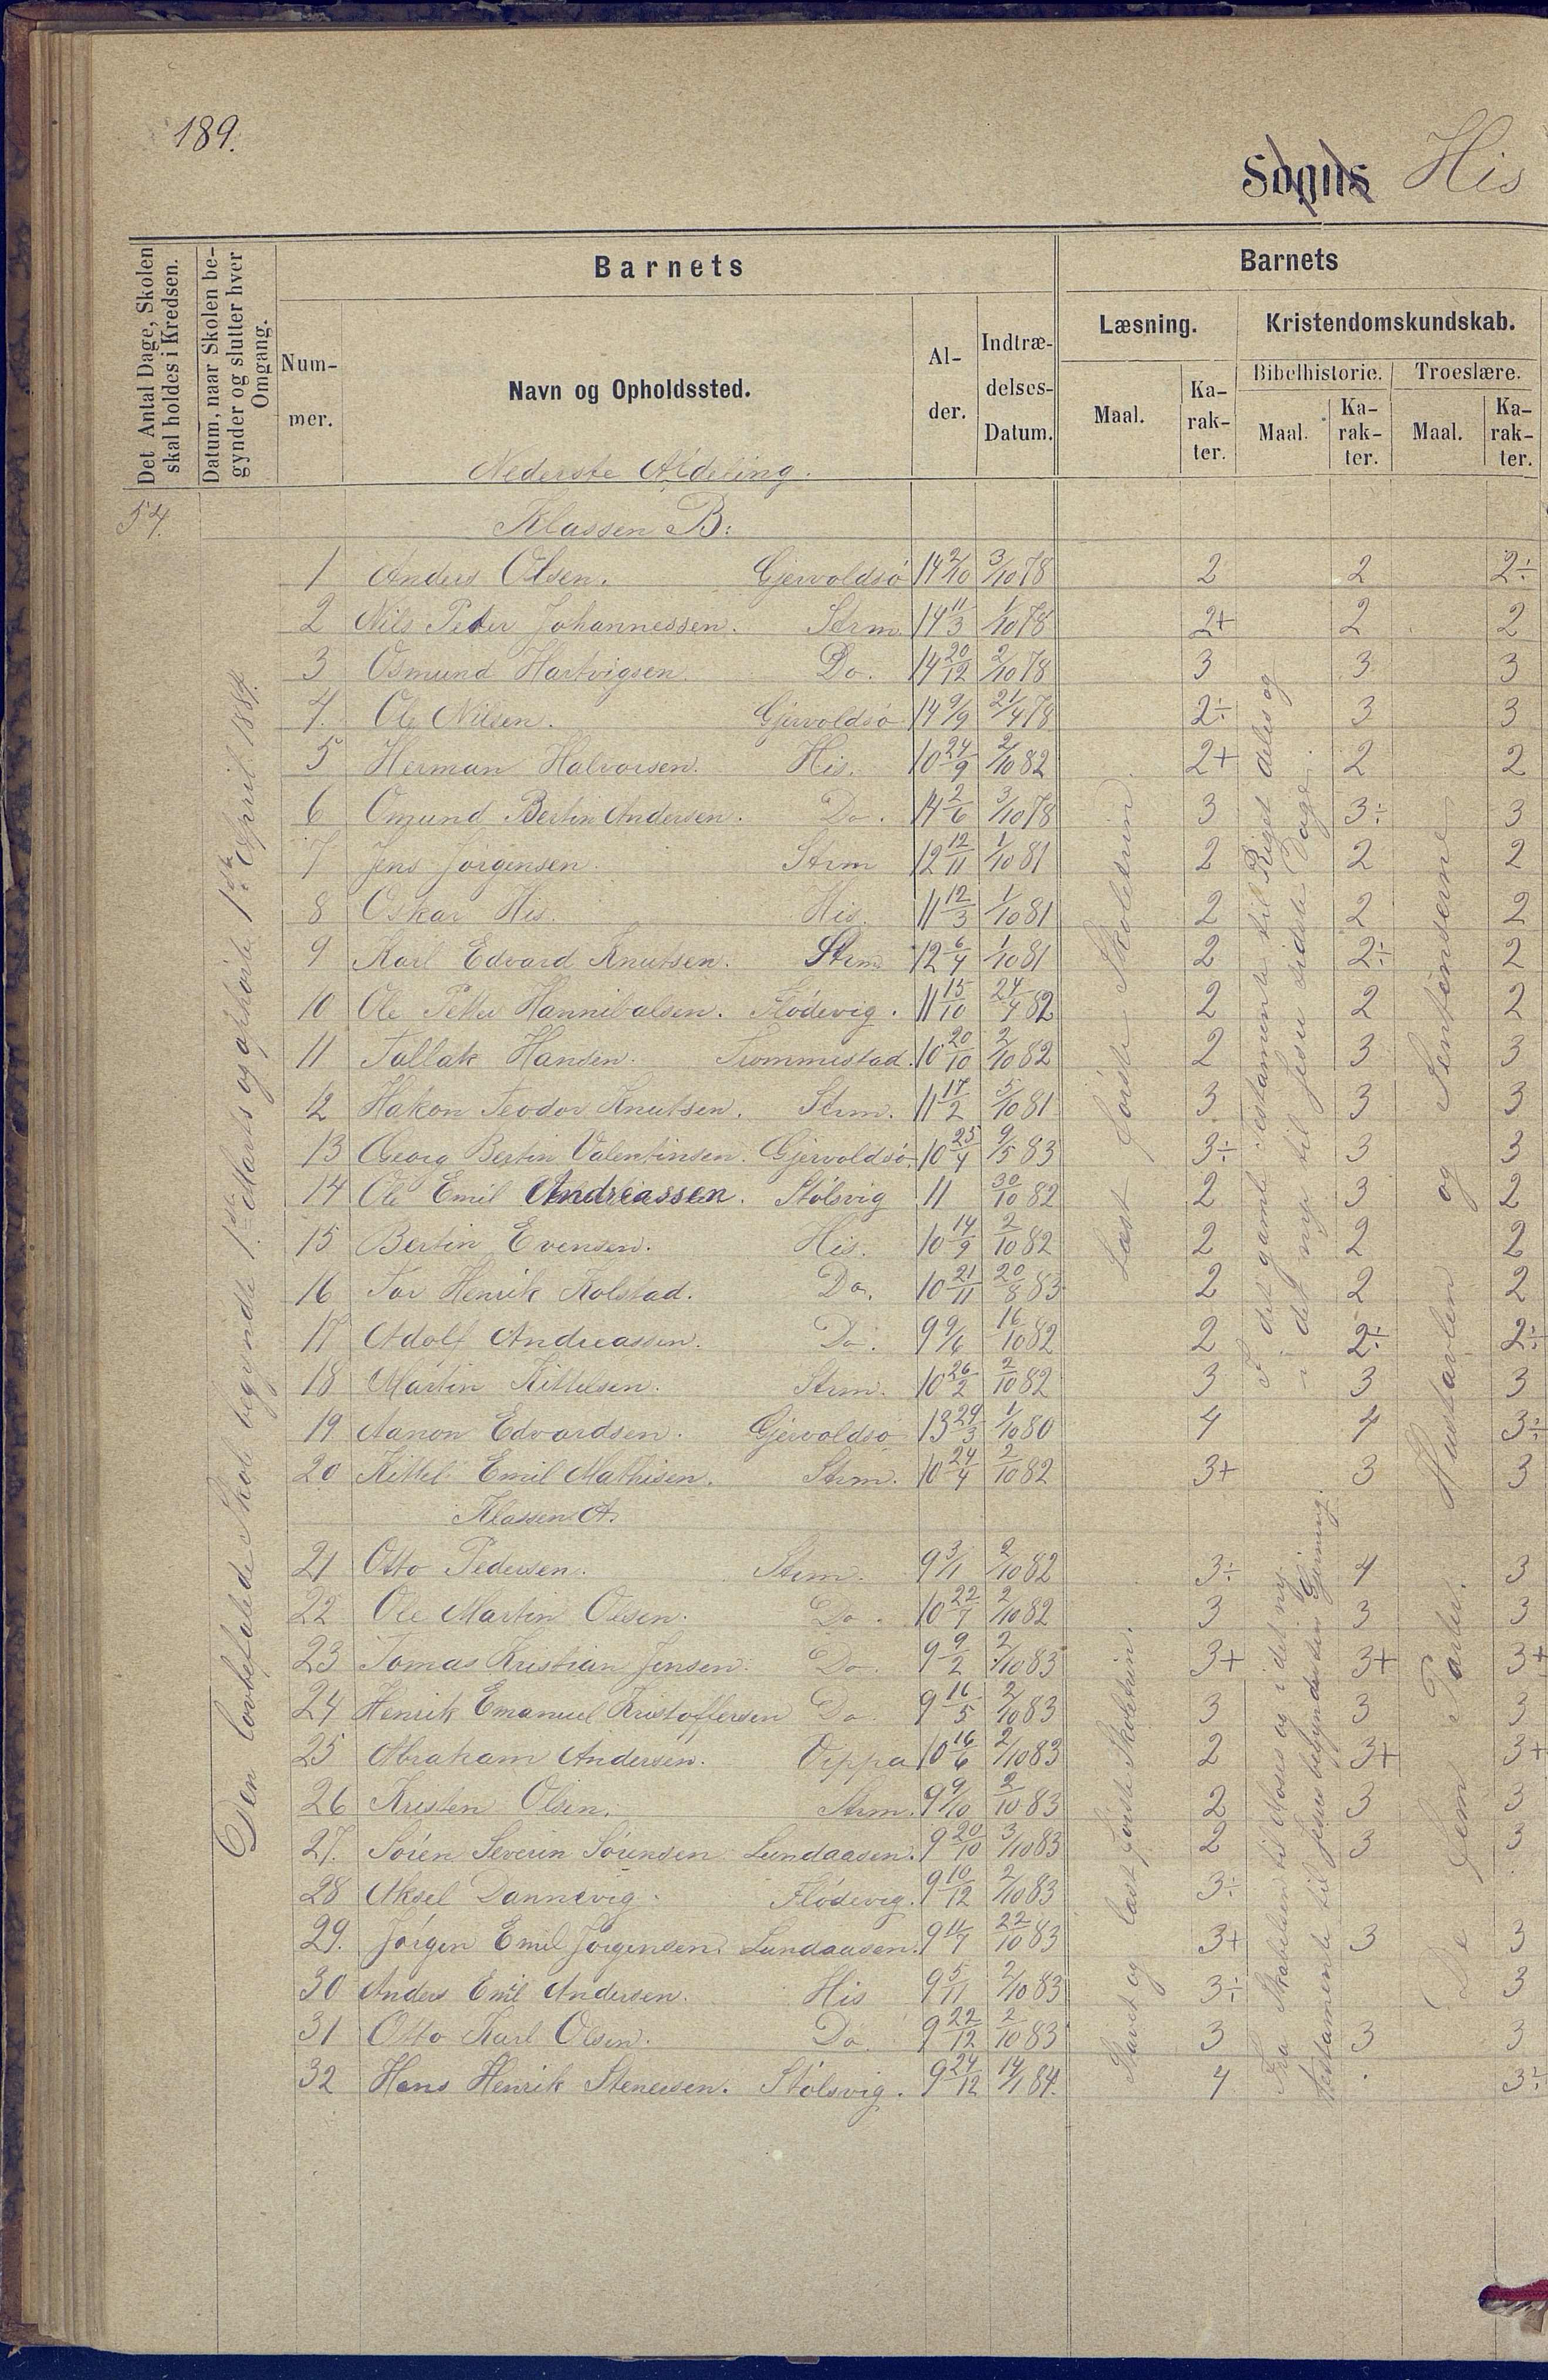 189.
Sogns His
Det Antal Dage, Skolen skal holdes i Kredsen.
Datum, naar Skolen begynder og slutter hver Omgang.
Barnets
Barnets
Nummer.
Navn og Opholdssted.
Alder.
Indtrædelses-Datum.
Læsning.
Kristendomskundskab.
Bibelhistorie.
Troeslære.
Maal.
Karakter.
Maal.
Karakter.
Maal.
Karakter.
Nederste Afdeling.
54.
Klassen B:
1 Anders Olsen. Gjervoldsø 14 2/10 3/10 78 2 2 2÷
2 Nils Peter Johannessen. Strm. 14 11/3 1/10 78 2+ 2 2
3 Osmund Hartvigsen Do. 14 20/12 2/10 78 3 3 3
4. Ole Nilsen. Gjervoldsø 14 9/9 21/4 78 2÷ 3 3
5 Herman Halvorsen. His. 10 24/9 2/10 82 2+ 2 2
6 Omund Bertin Andersen. Do. 14 2/6 3/10 78 3 3÷ 3
7 Jens Jørgensen. Strm 12 12/11 1/10 81 2 2 2
8 Oskar His. His. 11 12/3 1/10 81 2 2 2
9 Karl Edvard Knutsen. Strm 12 6/4 1/10 81 2 2÷ 2
10 Ole Petter Hannibalsen. Flødevig. 11 15/10 24/4 82 2 2 2
11 Tallak Hansen. Trommestad. 10 20/10 2/10 82 2 3 3
12 Håkon Teodor Knutsen. Strm. 11 17/2 5/10 81 3 3 3
13 Georg Bertin Valentinsen. Gjervoldsø. 10 25/4 9/5 83 3÷ 3 3
14 Ole Emil Andreassen. Stølsvig 11 30/10 82 2 3 2
15 Bertin Evensen. His. 10 14/9 2/10 82 2 2 2
16 Tor Henrik Kolstad. Do. 10 21/11 20/8 83 2 2 2
17 Adolf Andreassen. Do. 9 9/6 16/10 82 2 2÷ 2÷
18 Martin Kittelsen. Strm. 10 26/2 2/10 82 3 3 3
19 Aanon Edvardsen. Gjervoldsø 13 29/3 1/10 80 4 4 3÷
20 Kittel Emil Mathisen. Strm. 10 24/4 2/10 82 3+ 3 3
Klassen A.
21 Otto Pedersen. Strm. 9 3/1 2/10 82 3÷ 4 3
22 Ole Martin Olsen. Do. 10 22/7 2/10 82 3 3 3
23 Tomas Kristian Jensen. Do. 9 9/2 2/10 83 3+ 3+ 3+
24 Henrik Emanuel Kristoffersen Do. 9 16/5 2/10 83 3 3 3
25 Abraham Andersen. Vippa 10 16/6 2/10 83 2 3+ 3+
26 Kristen Olsen. Strm. 9 9/10 2/10 83 2 3 3
27. Søren Severin Sørensen Lundaasen. 9 20/10 3/10 83 2 3 3
28 Aksel Dannevig. Flødevig. 9 10/12 2/10 83 3÷
29. Jørgen Emil Jørgensen. Lundaasen. 9 11/7 22/10 83 3+ 3 3
30 Anders Emil Andersen. His 9 5/11 2/10 83 3÷ 3
31 Otto Karl Olsen. Do. 9 22/12 2/10 83 3 3 3
32 Hans Henrik Stenersen. Stølsvig. 9 24/12 14/1 84. 4 3÷
Den lovbefalede Skole begyndte 1ste Marts og ophørte 1ste April 1884.
Læst første Skoletrin
I det gamle Testamente til Riget deles og
i det nye til Jesu sidste Dage.
Stavet og læst første Skoletrin.
Fra Skabelsen til Moses og i det ny
Testamente til Jesus begynder sin Gjerning.
De fem Parter. Hustavlen og Sentenserne